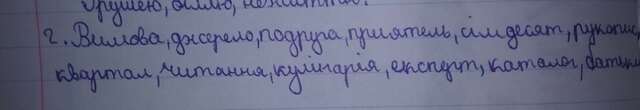 грушею,
2. Вимова, джерело, подруга, приятель, сімдесят, рукопис,
квартал, читання, кулінарія, експерт, каталог, батьки